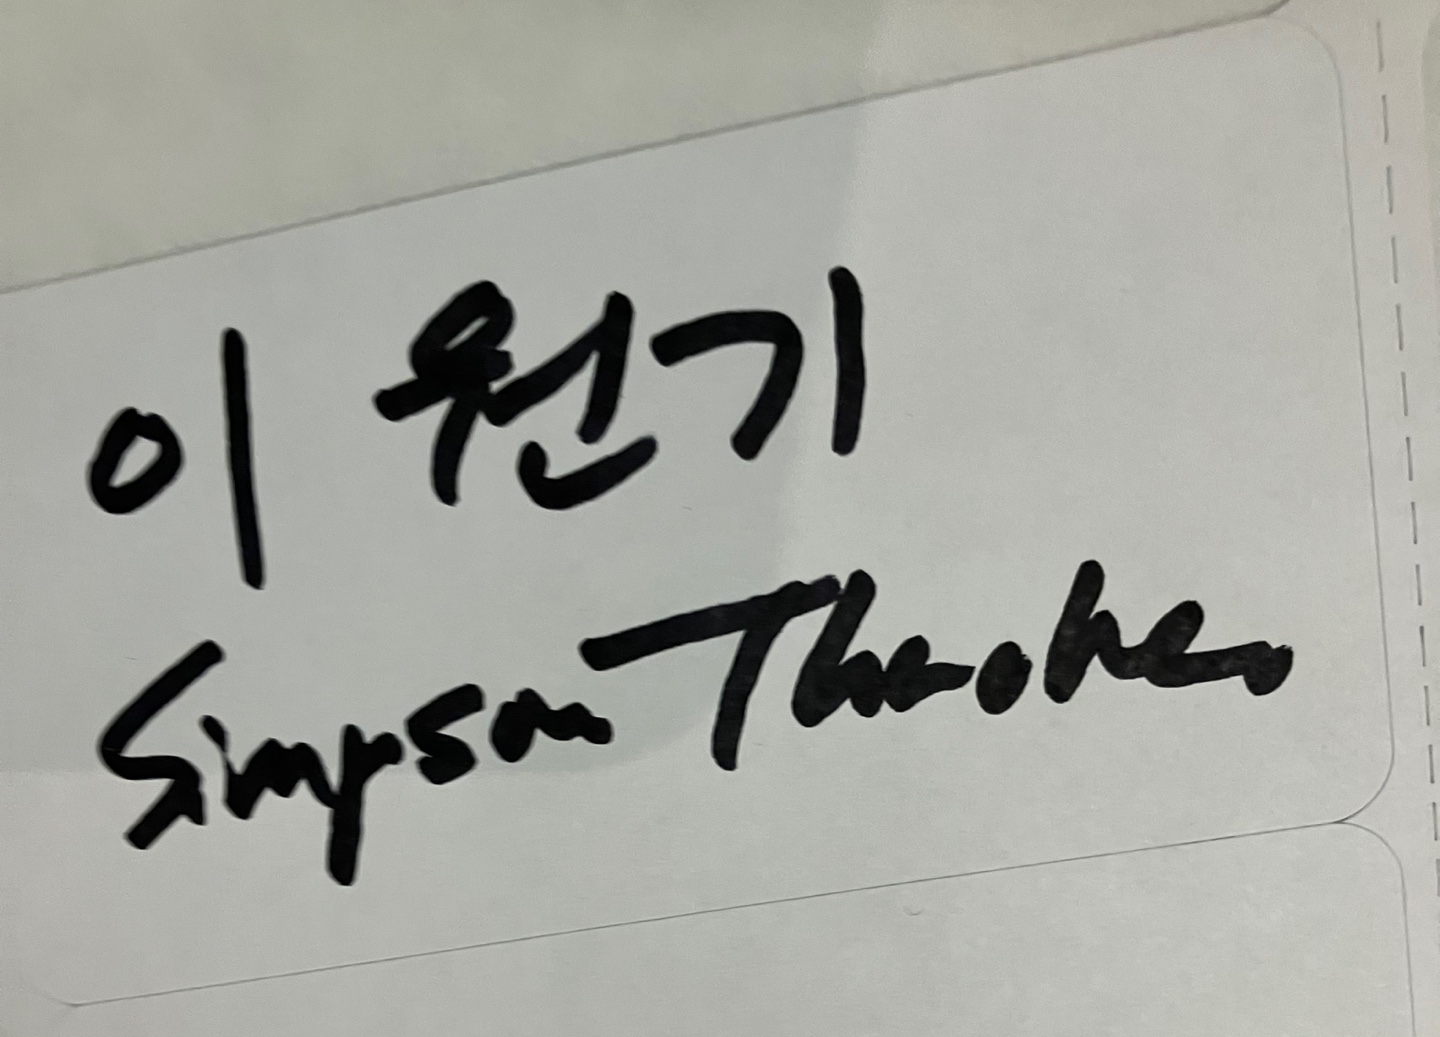 이 원기
Simpson Thacher